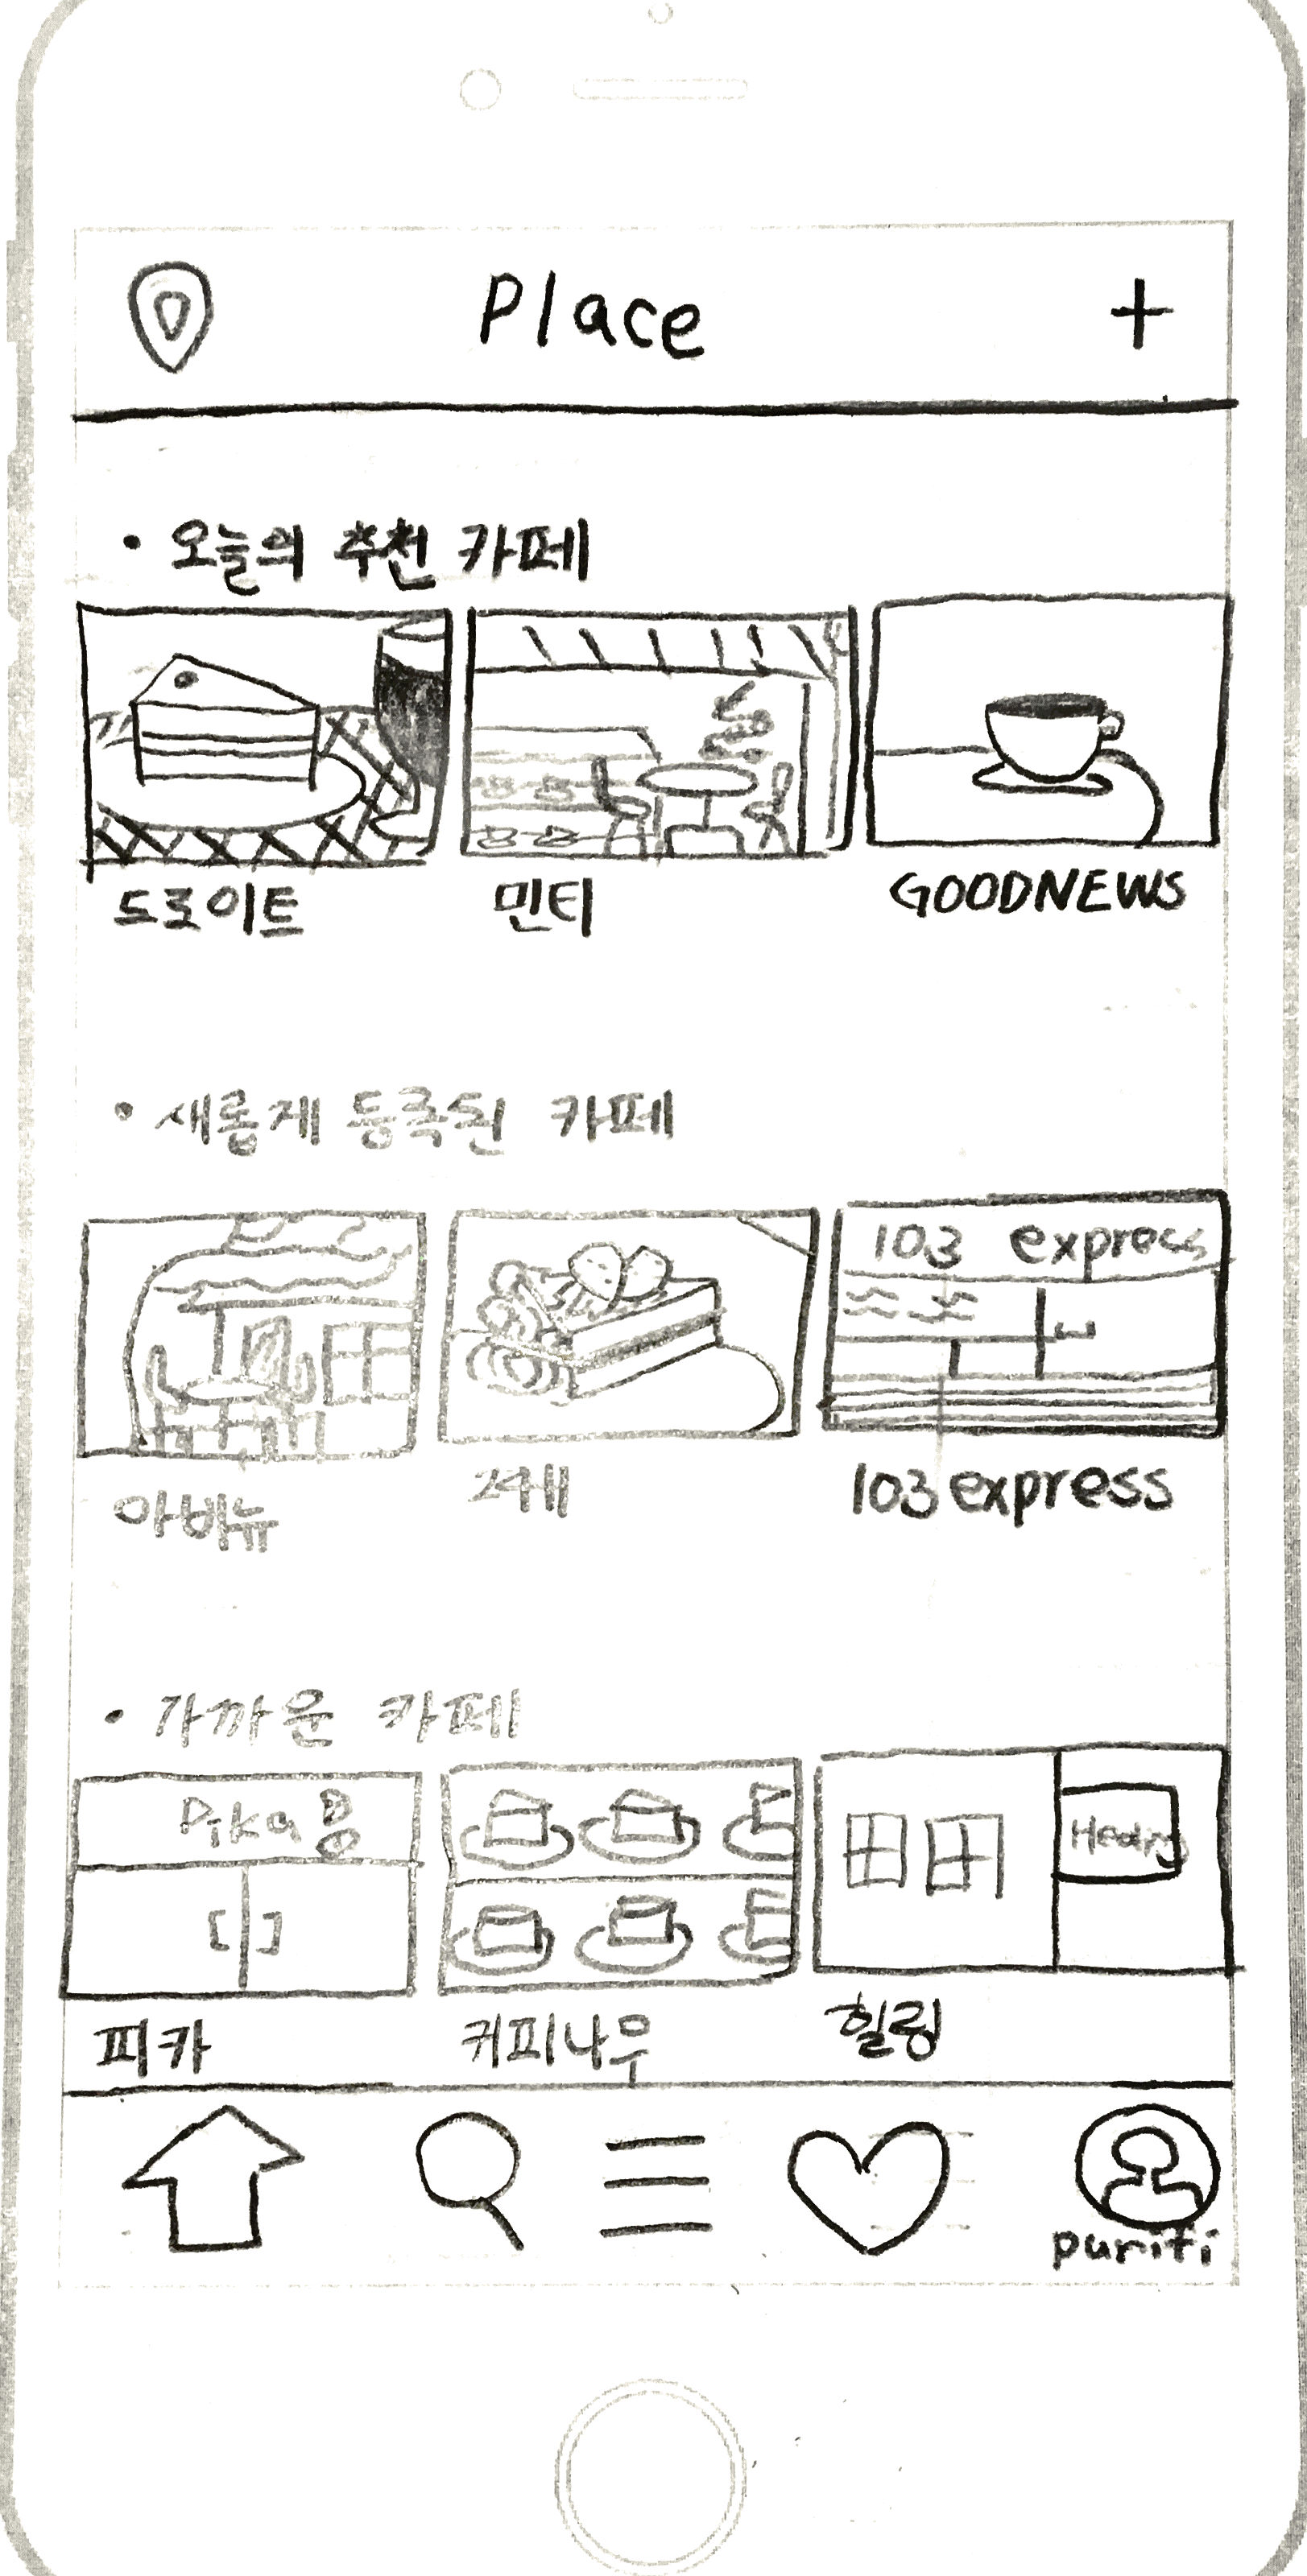 Place
+
• 오늘의 추천 카페
드로이트 민티 GOODNEWS
• 새롭게 등록된 카페
103 express
아바뉴 103 express
• 가까운 카페
Pika
피카 커피나무 힐링
puriti